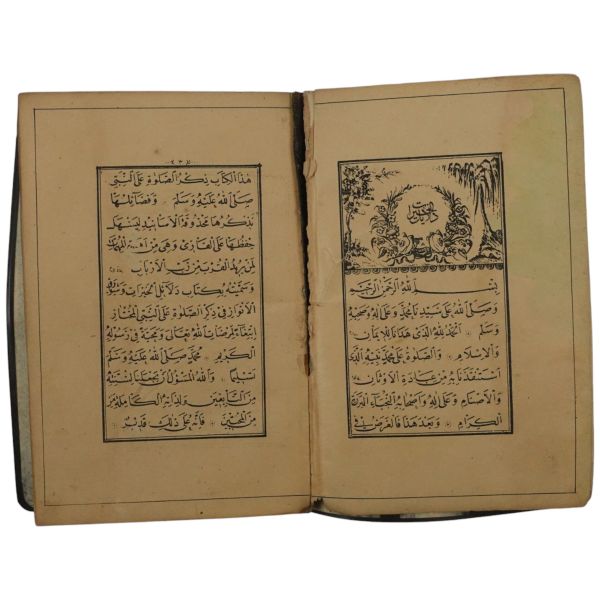 دلائل خيرات
بِسْمِ اللهِ الرَّحْمٰنِ الرَّحِيمِ
وَصَلَّى اللهُ عَلٰى سَيِّدِنَا مُحَمَّدٍ وَعَلٰى اٰلِهِ وَصَحْبِهِ
وَسَلَّمَ اَلْحَمْدُ لِلّٰهِ الَّذِي هَدٰينَا لِلْاِيمَانِ
وَالْاِسْلَامِ وَالصَّلٰوةُ عَلٰى مُحَمَّدٍ نَبِيِّهِ الَّذِي
اسْتَنْقَذَنَا بِهِ مِنْ عِبَادَةِ الْاَوْثَانِ
وَالْاَصْنَامِ وَعَلٰى اٰلِهِ وَاَصْحَابِهِ النُّجَبَاءِ الْبَرَرَةِ
الْكِرَامِ وَبَعْدَ هٰذَا فَالْغَرَضُ فِي
هٰذَا الْكِتَابِ ذِكْرُ الصَّلٰوةِ عَلَى النَّبِيِّ
صَلَّى اللهُ عَلَيْهِ وَسَلَّمَ وَفَضَائِلِهَا
نَذْكُرُهَا مَحْذُوفَةَ الْاَسَانِيدِ لِيَسْهُلَ
حِفْظُهَا عَلَى الْقَارِئِ وَهِيَ مِنْ اَهَمِّ الْمُهِمَّاتِ
لِمَنْ يُرِيدُ الْقُرْبَ مِنْ رَبِّ الْاَرْبَابِ
وَسَمَّيْتُهُ بِكِتَابِ دَلَائِلِ الْخَيْرَاتِ وَشَوَارِقِ
الْاَنْوَارِ فِي ذِكْرِ الصَّلٰوةِ عَلَى النَّبِيِّ الْمُخْتَارِ
ابْتِغَاءً لِمَرْضَاتِ اللهِ تَعَالٰى وَمَحَبَّةً فِي رَسُولِهِ
الْكَرِيمِ مُحَمَّدٍ صَلَّى اللهُ عَلَيْهِ وَسَلَّمَ
تَسْلِيمًا وَاللهُ الْمَسْؤُلُ اَنْ يَجْعَلَنَا لِسُنَّتِهِ
مِنَ التَّابِعِينَ وَلِذَاتِهِ الْكَامِلَةِ مِنَ
الْمُحِبِّينَ فَاِنَّهُ عَلٰى ذٰلِكَ قَدِيرٌ